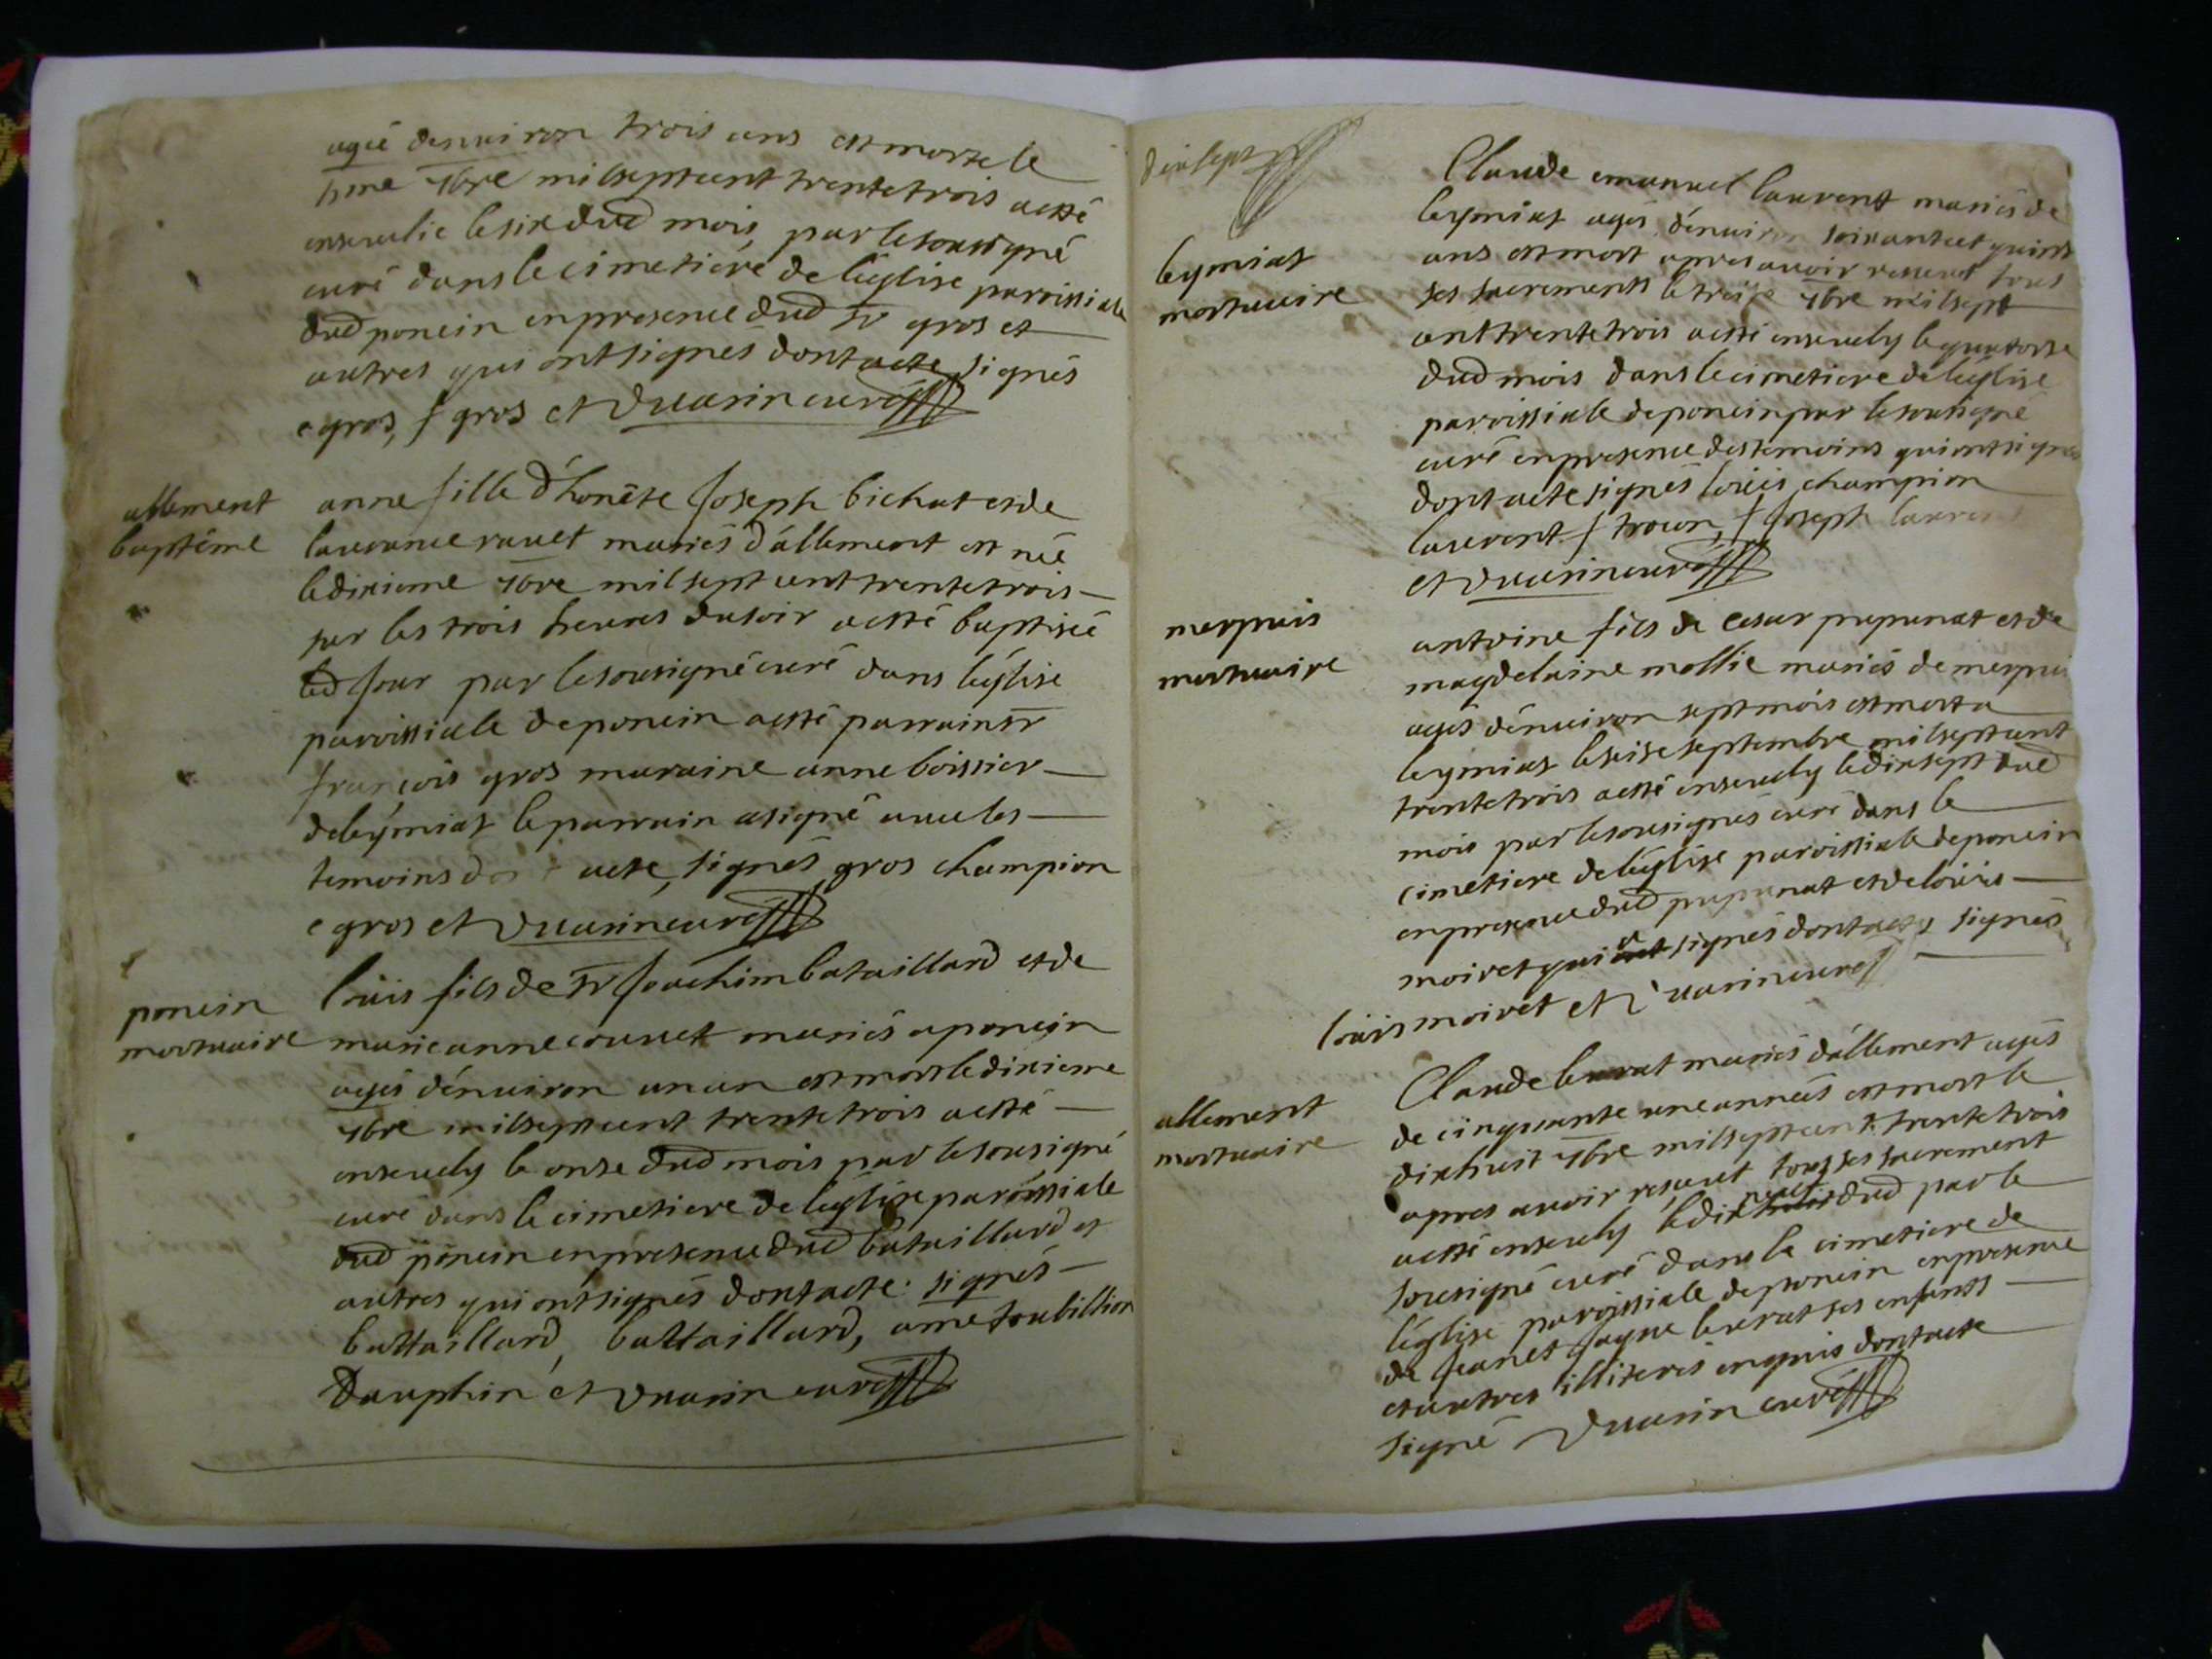 agée denuiron trois ans est morte le
5me 7bre mil sept cent trente trois a esté
enseuelie le six dud mois par le sousigné
curé dans le cimetiére de l'église paroissiale
dud poncin en presence dud sr gros et
autres qui ont signés dont acte signés
c gros, f gros et Duasin curé
allement
baptême
anne fille d'honête Joseph bichat et de
laurance rauet mariés d'allement est née
le dixieme 7bre mil sept cent trente trois
sur les trois heures du soir a esté baptisée
led jour par le sousigné curé dans l'église
paroissiale de poncin a esté parrain sr
françois gros maraine anne boissier
de leymiat le parrain a signé auec les
temoins acte, signés gros champion
c gros et Duasin curé
poncin
mortuaire
loüis fils de sr Joachim bataillard et de
marie anne couuet mariés a poncin
agés d'enuiron un an est mort le dixieme
7bre mil sept cent trente trois a esté
enseuely le onse dud mois par le sousigné
curé dans le cimetiere de l'église paroissiale
dud poncin en presence dud bataillard et
autres qui ont signés dont acte. signés
battaillard, battaillard, ame toubillion
Dauphin et Duasin curé
dixsept
leymiat
mortuaire
Claude emanuel laurent mariés de
leymiat agés d'enuiron soixante et quinse
ans est mort apres auoir resceut tous
ses sacrements le treise 7bre mil sept
cent trente trois a esté enseuely le quatorse
dud mois dans le cimetiere de l'église
paroissiale de poncin par le sousigné
curé en presence des temoins qui ont signés
dont acte signés loüis champion
laurent f trocon, f Joseph laurent
et Duasin curé
merpuis
mortuaire
antoine fils de Cesar pupunat et de
magdelaine mollie mariés de merpuis
agés d'enuiron sept mois est mort a
leymiat le seise septembre mil sept cent
trente trois a esté enseuely le dixsept dud
mois par le sousignés curé dans le
cimetiere de l'église paroissiale de poncin
en presence dud pupunat et de loüis
moiret qui a signés dont acte signés
loüis moiret et Duasin curé
allement
mortuaire
Claude leurat mariés d'allement agés
de cinquante une années est mort le
dixhuit 7bre mil sept cent trente trois
apres auoir resceut tous ses sacrement
a esté enseuely le dix neuf dud par le
sousigné curé dans le cimetiere de
l'église paroissiale de poncin en presence
de Jean et Jaque leurat ses enfants
et autres illiterés enquis dont acte
signé Duasin curé